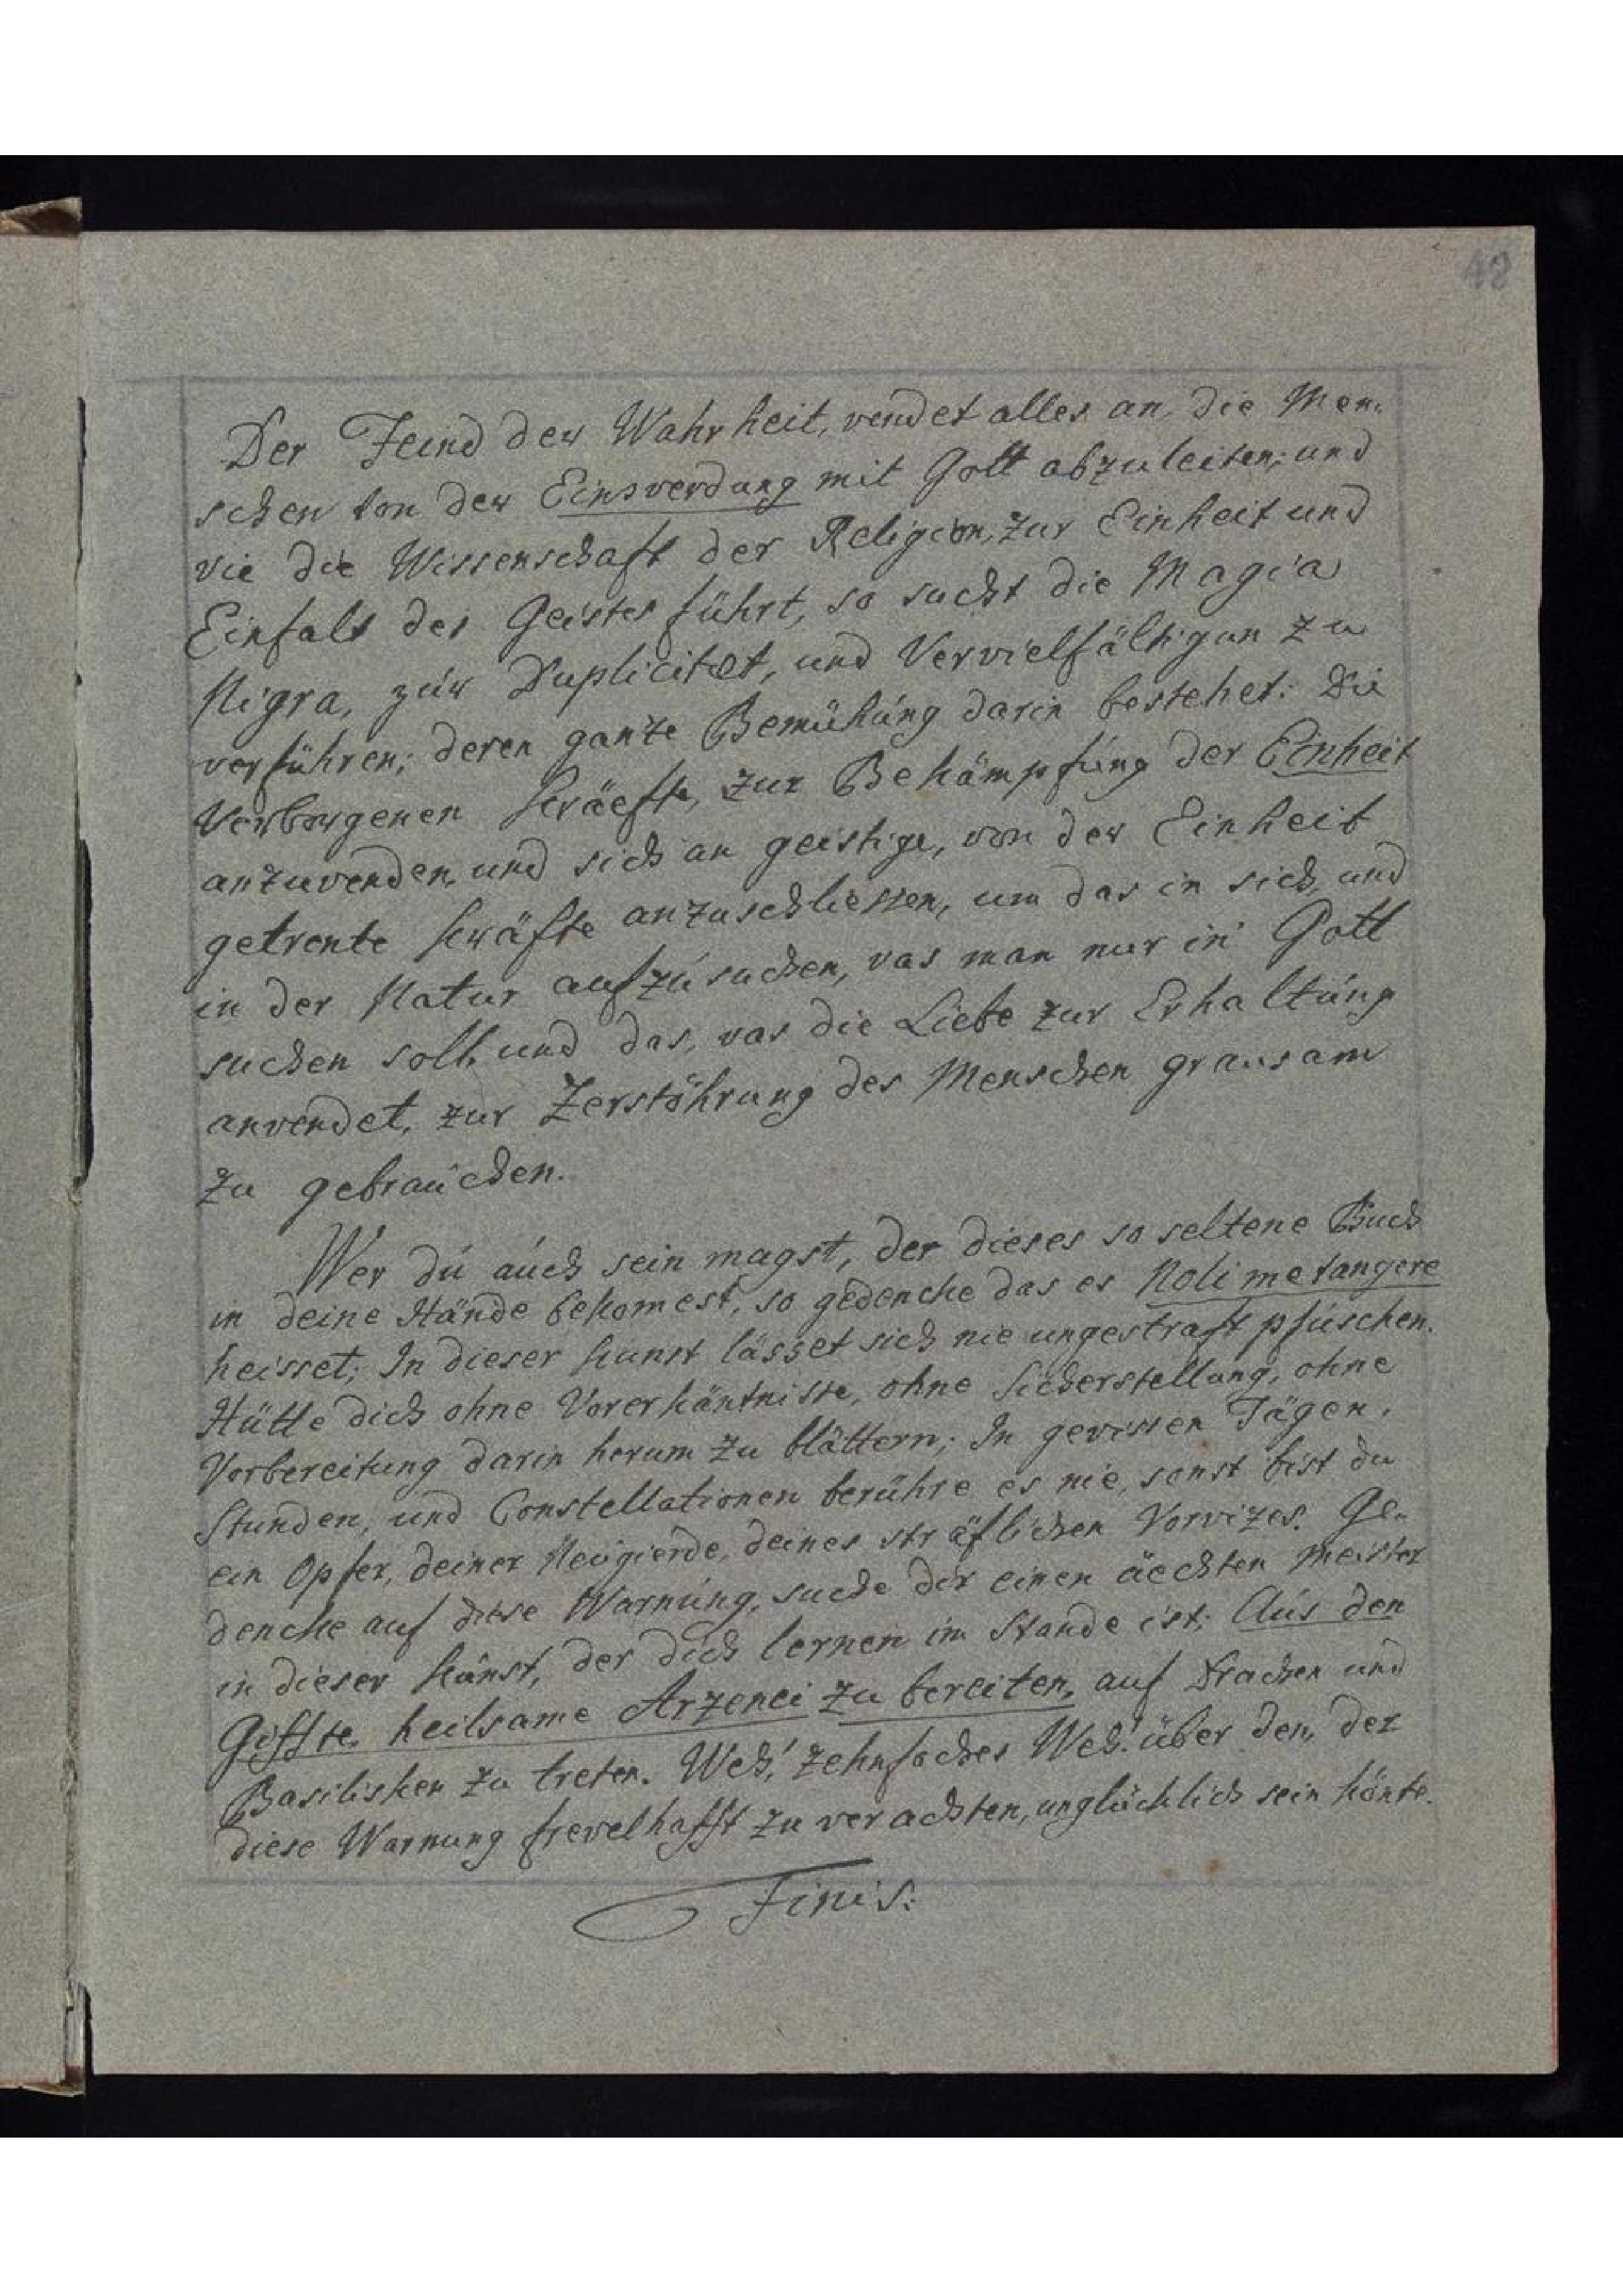 42
Der Feind der Wahrheit, vendet alles an, die Men-
schen von der Einsverdung mit Gott abzuleiten; und
vie die Wissenschaft der Religion, zur Einheit und
Einfalt des Geistes führt, so sucht die Magia
Nigra, zúr Duplicitæt, und Vervielfältigun zu
verführen; deren ganze Bemühúng darin bestehet: Die
Verborgenen Kräefte, zur Bekämpfúng der Einheit
anzuvenden, und sich an geistige, von der Einheit
getrente Kräfte anzuschliessen, um das in sich, und
in der Natur aufzúsuchen, vas man nur in Gott
suchen soll, und das, vas die Liebe zur Erhaltúng
anvendet, zur Zerstöhrung des Menschen grausam
zu gebraúchen.
Wer dú aúch sein magst, der dieses so seltene Buch
in deine Hände bekomest, so gedencke das es Noli me tangere
heisset; In dieser Kunst lässet sich nie ungestraft pfúschen.
Hütte dich ohne Vorerkäntniste, ohne Sicherstellung, ohne
Vorbereitung darin herum zu blättern; In gevissen Tägen,
Stunden, und Constellationen berühre es nie, sonst bist du
ein Opfer, deiner Neúgierde, deines sträflichen Vorvizes. Ge-
dencke auf diese Warnúng, suche dir einen äechten Meister
in dieser Kúnst, der dich lernen im Stande ist; Aús den
Giffte, heilsame Arzenei zu bereiten, auf Drachen und
Basilisken zu treten. Weh! zehnfaches Weh! über den, der
diese Warnung frevelhafft zu verachten, unglücklich sein könte.
Finis: